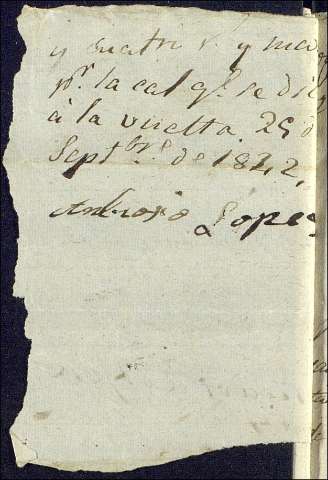 y cuatro r.s y med
p.r la cal q.e se dis
à la vuelta. 25 d
Sept.bre de 1842,
Ambrosio Lopes